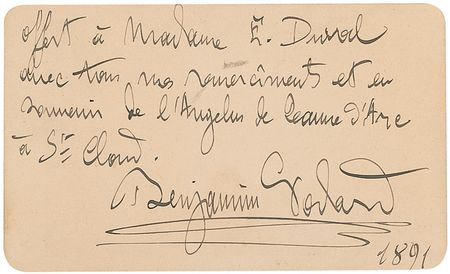 offert à Madame E. Duval
avec tous mes remerciments et en
souvenir de l'Angelus de Jeanne d'Arc
à St Cloud.
Benjamin Godard
1891